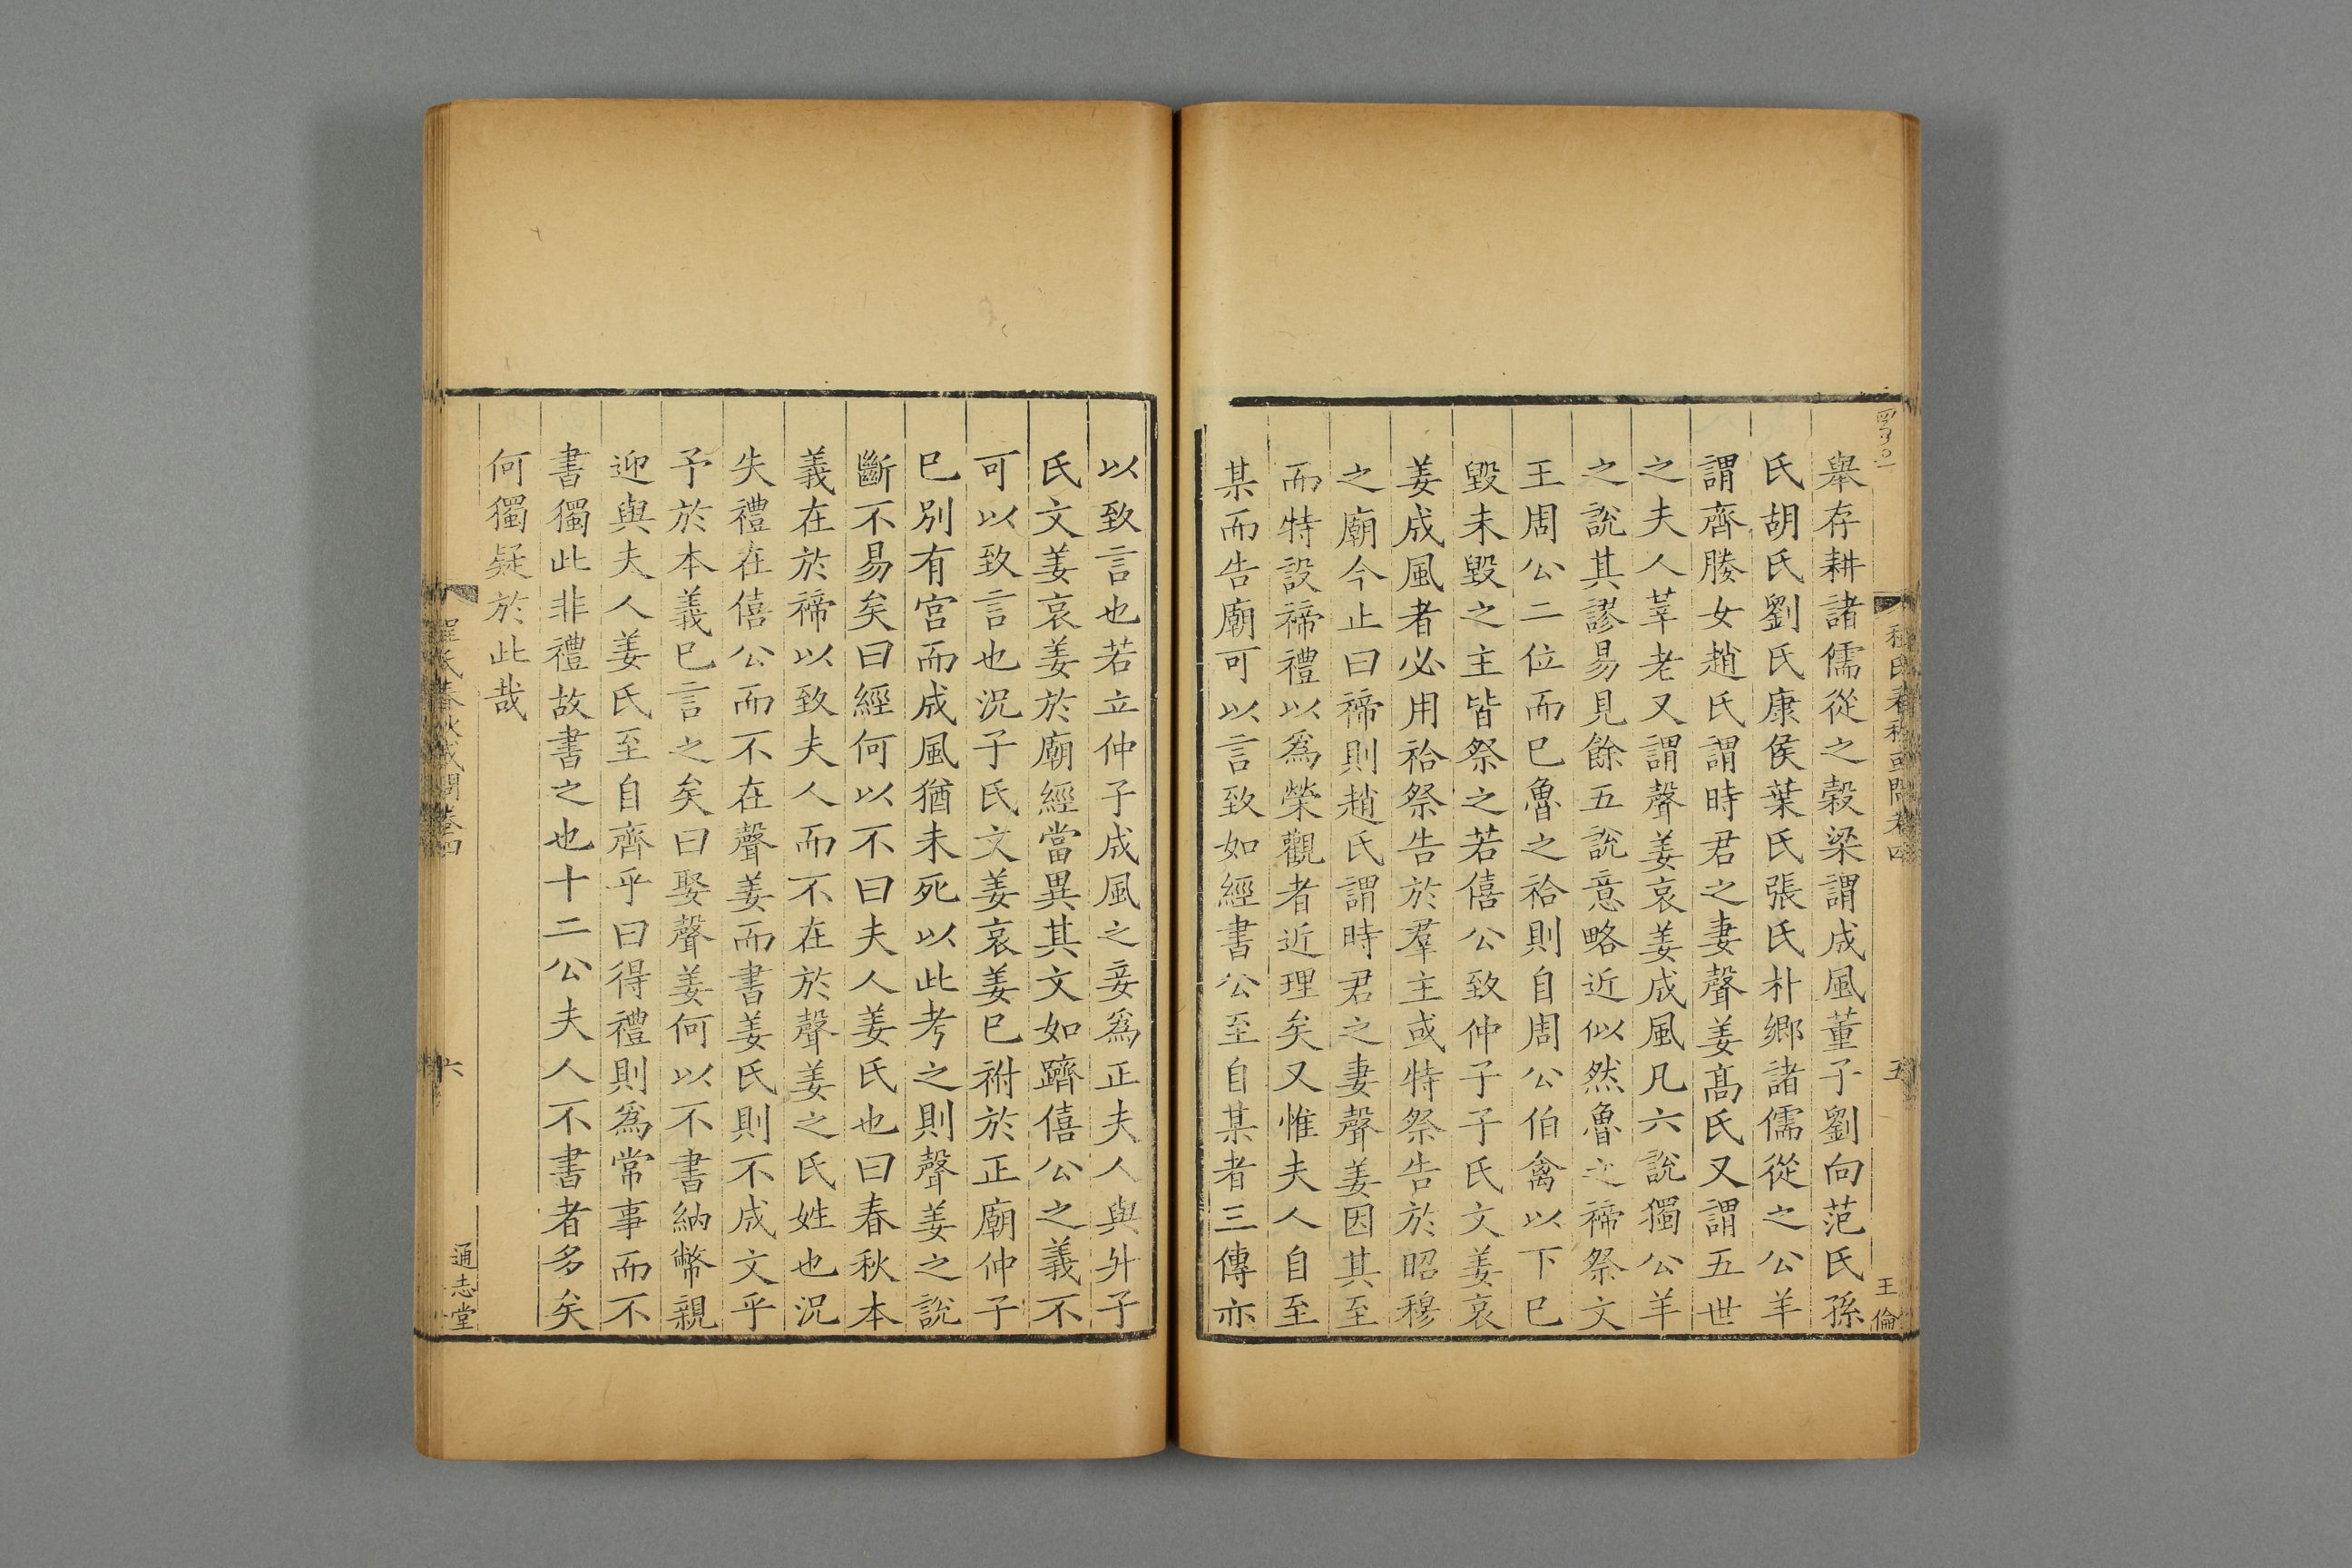 舉存耕諸儒從之穀梁謂成風董子劉向范氏孫
氏胡氏劉氏康侯葉氏張氏朴鄉諸儒從之公羊
謂齊媵女趙氏謂時君之妻聲姜髙氏又謂五世
之夫人莘老又謂聲姜哀姜成風凡六說獨公羊
之說其謬易見餘五說意略近似然魯之禘祭文
王周公二位而巳魯之祫則自周公伯禽以下巳
毀未毀之主皆祭之若僖公致仲子子氏文姜哀
姜成風者必用祫祭告於羣主或特祭告於昭穆
之廟今止曰禘則趙氏謂時君之妻聲姜因其至
而特設禘禮以為榮觀者近理矣又惟夫人自至
某而告廟可以言致如經書公至自某者三傳亦
程氏春秋或問卷四
五
王倫
以致言也若立仲子成風之妾為正夫人與外子
氏文姜哀姜於廟經當異其文如躋僖公之義不
可以致言也況子氏文姜哀姜巳祔於正廟仲子
巳別有宮而成風猶未死以此考之則聲姜之說
斷不易矣曰經何以不曰夫人姜氏也曰春秋本
義在於禘以致夫人而不在於聲姜之氏姓也況
失禮在僖公而不在聲姜而書姜氏則不成文乎
予於本義巳言之矣曰娶聲姜何以不書納幣親
迎與夫人姜氏至自齊乎曰得禮則為常事而不
書獨此非禮故書之也十二公夫人不書者多矣
何獨疑於此哉
程氏春秋或問卷四
六
通志堂